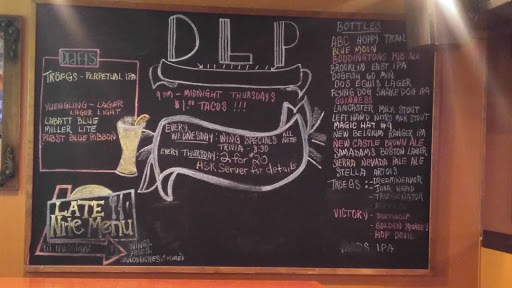 DLP
9 PM - MIDNIGHT THURSDAYS
$1.00 TACOS !!!
EVERY WEDNESDAY: WING SPECIALS ALL NITE
TRIVIA 9:30
EVERY THURSDAY: 2 for 20
ASK SERVER for details
DRAFTS
TRÖEGS - PERPETUAL IPA
YUENGLING - LAGER
LAGER LIGHT
LABATT BLUE
MILLER LITE
PABST BLUE RIBBON
LATE
Nite Menu
WINGS
FRIES
SANDWICHES & MORE!
BOTTLES
ABC HOPPY TRAIL
BLUE MOON
BODDINGTONS PUB ALE
BROOKLYN EAST IPA
DOGFISH 60 MIN
DOS EQUIS LAGER
FLYING DOG SNAKE DOG IPA
GUINNESS
LANCASTER MILK STOUT
LEFT HAND NITRO MILK STOUT
MAGIC HAT #9
NEW BELGIUM RANGER IPA
NEW CASTLE BROWN ALE
SAM ADAMS BOSTON LAGER
SIERRA NEVADA PALE ALE
STELLA ARTOIS
TRÖEGS :- DREAMWEAVER
- TROEGENATOR
VICTORY -
- GOLDEN MONKEY
- HOP DEVIL
IPA